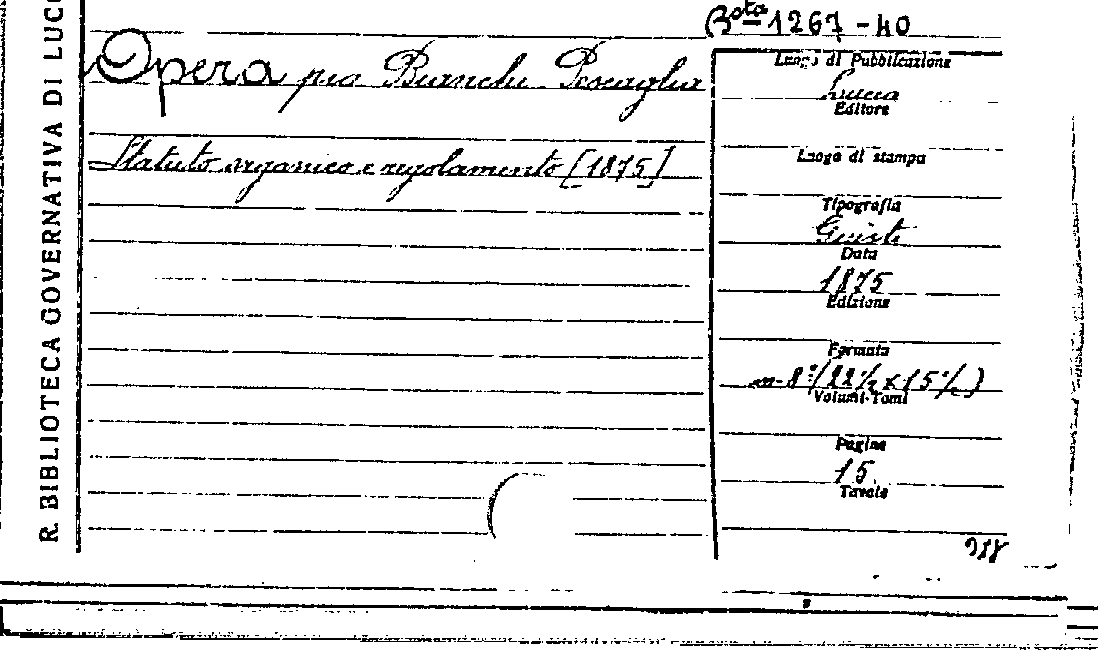 R. BIBLIOTECA GOVERNATIVA DI LUCC
Bsta 1267-40
Opera pia Bianchi Pescaglia
Statuto organico e regolamento [1875]
Luogo di Pubblicazione
Lucca
Editore
Luogo di stampa
Tipografia
Giusti
Data
1875
Edizione
Formato
in-8º (22½ x 15½)
Volumi-Tomi
Pagine
15.
Tavole